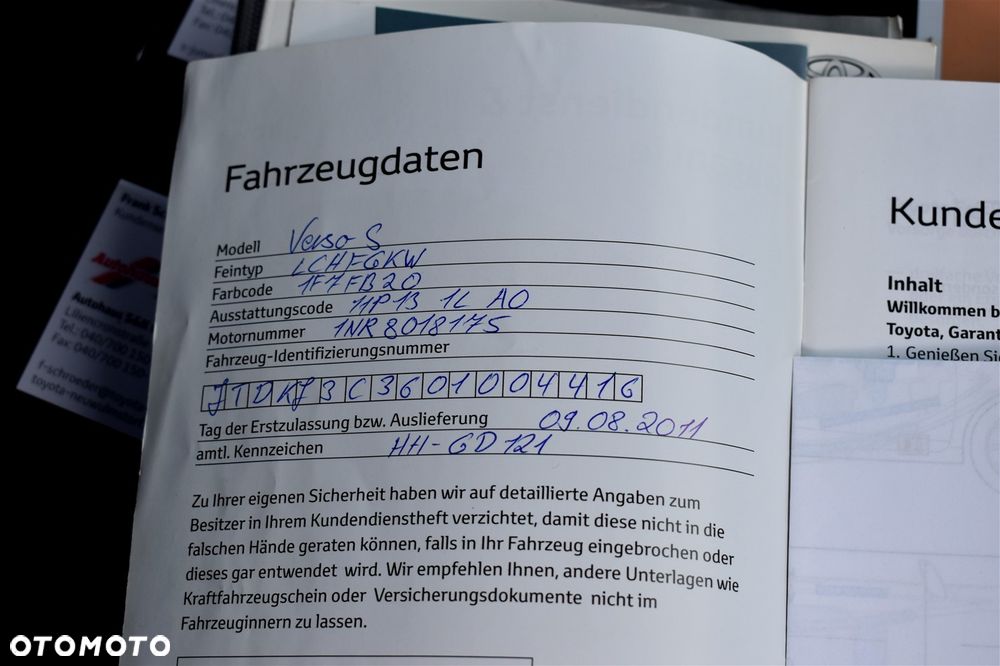 Fahrzeugdaten
Modell Verso S
Feintyp LCHFGKW
Farbcode 1F7FB20
Ausstattungscode 11P13 1L A0
Motornummer 1NR8018175
Fahrzeug-Identifizierungsnummer
JTDKJ3C3601004416
Tag der Erstzulassung bzw. Auslieferung 09.08.2011
amtl. Kennzeichen HH-GD121
Zu Ihrer eigenen Sicherheit haben wir auf detaillierte Angaben zum
Besitzer in Ihrem Kundendienstheft verzichtet, damit diese nicht in die
falschen Hände geraten können, falls in Ihr Fahrzeug eingebrochen oder
dieses gar entwendet wird. Wir empfehlen Ihnen, andere Unterlagen wie
Kraftfahrzeugschein oder Versicherungsdokumente nicht im
Fahrzeuginnern zu lassen.
Kunde
Inhalt
Willkommen b
Toyota, Garant
1. Genießen Si
Frank Sc
Kundendie
Autohaus S&R
Liliencronstraße
Tel.: 040/700 150
Fax: 040/700 150-
f-schroeder@toyota
toyota-neuwulmstorf
OTOMOTO